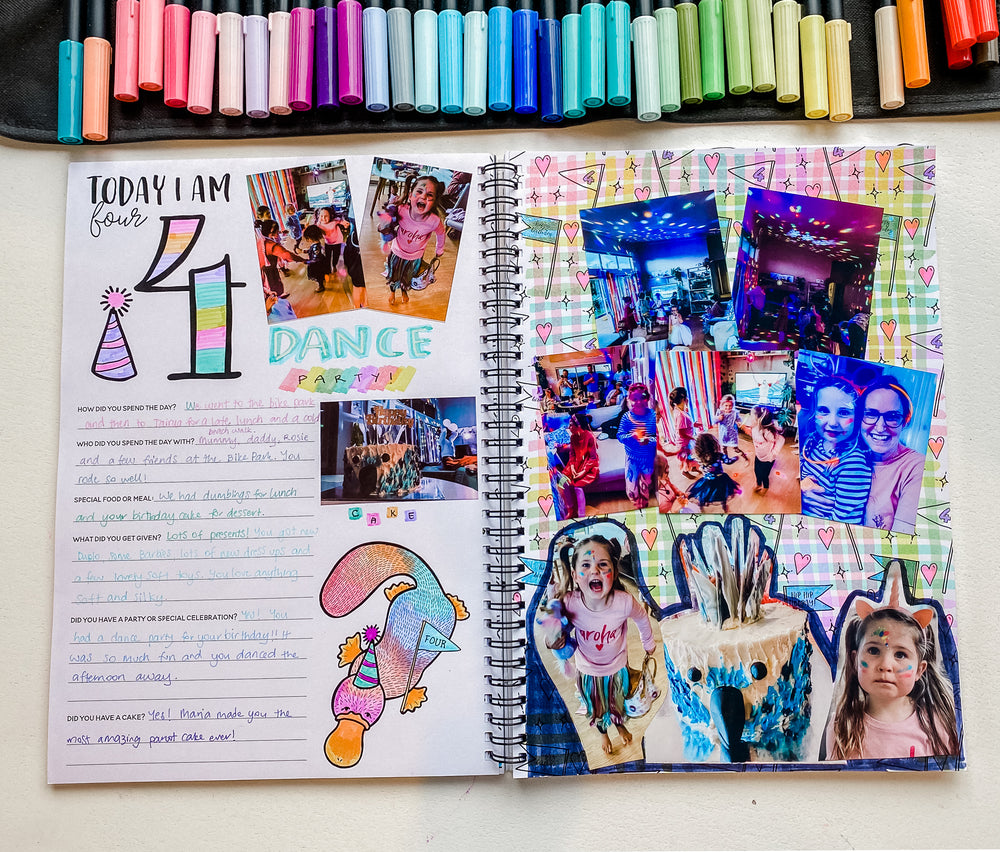 TODAY I AM
four
4
DANCE
PARTY!
HOW DID YOU SPEND THE DAY? We went to the bike park
and then to Tainia for a late lunch and a cold
beach walk
WHO DID YOU SPEND THE DAY WITH? Mummy, daddy, Rosie
and a few friends at the Bike Park. You
rode so well!
SPECIAL FOOD OR MEAL: We had dumblings for lunch
and your birthday cake for dessert.
WHAT DID YOU GET GIVEN? Lots of presents! You got new
Duplo some Barbies lots of new dress ups and
a few lovely soft toys. You love anything
soft and silky.
DID YOU HAVE A PARTY OR SPECIAL CELEBRATION? Yes! You
had a dance party for your birthday!! It
was so much fun and you danced the
afternoon away.
DID YOU HAVE A CAKE? Yes! Maria made you the
most amazing parrot cake ever!
CAKE
FOUR
aroha
aroha
4
4
4